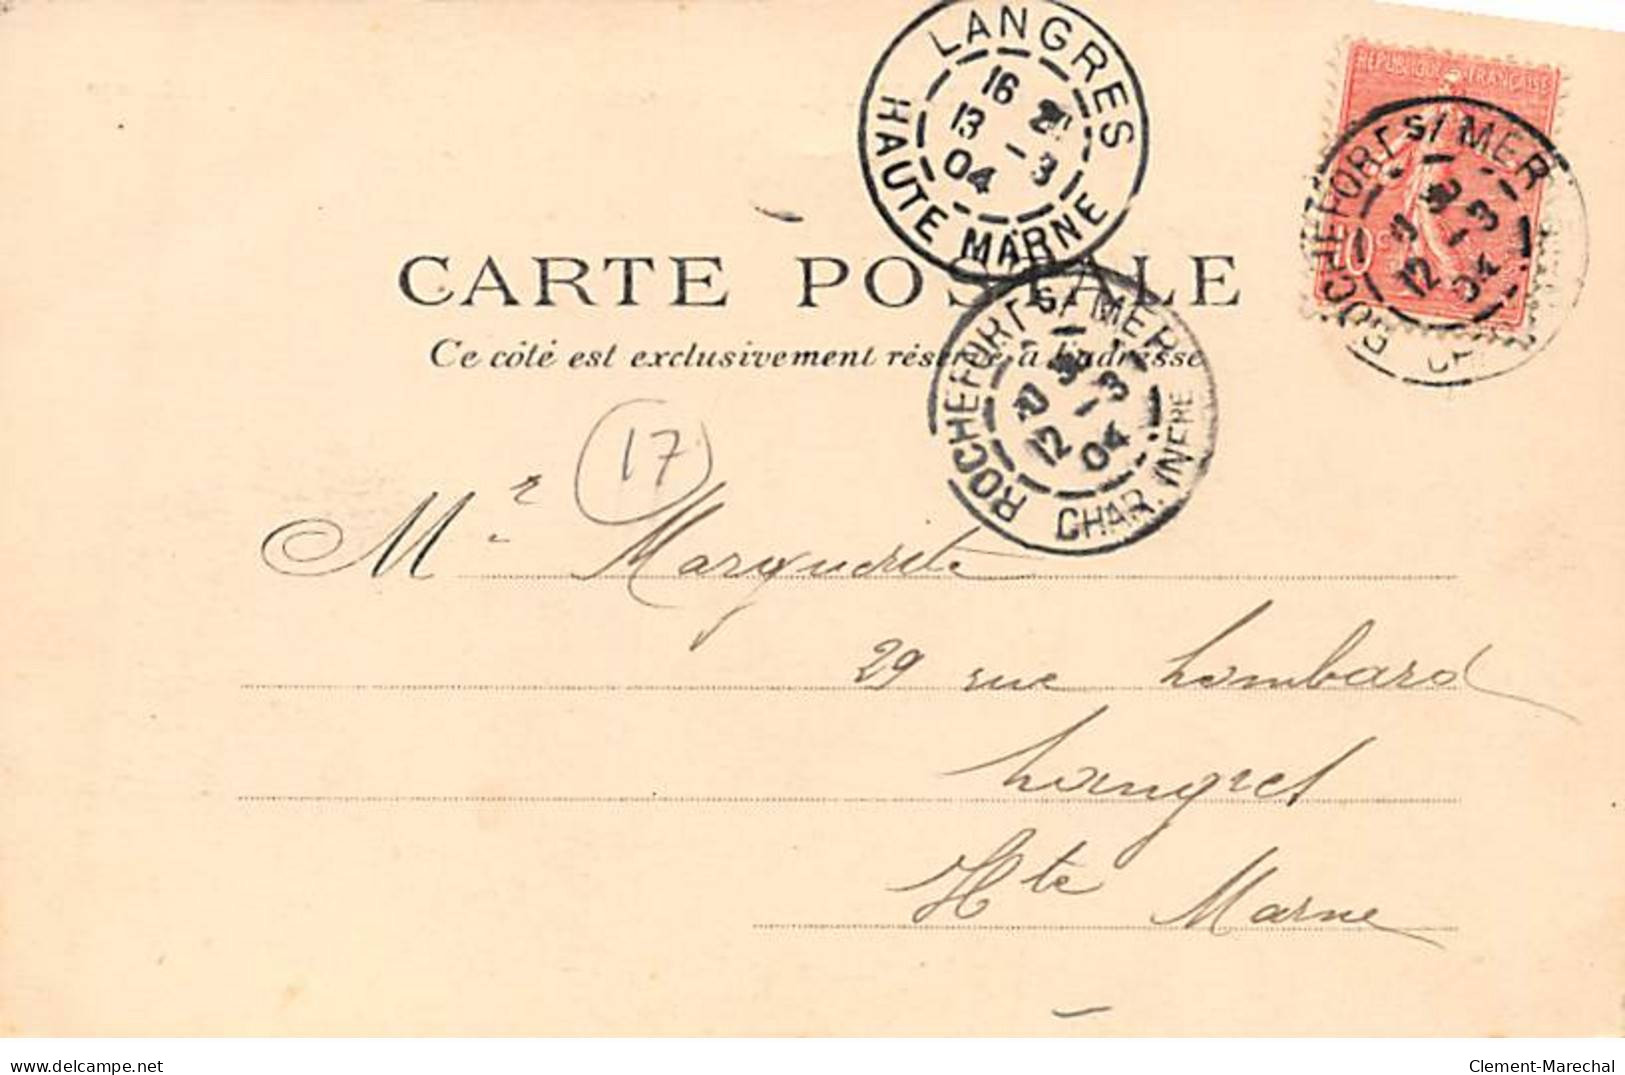 LANGRES
16
13 -3
04
HAUTE MARNE
REPUBLIQUE FRANÇAISE
10 c
ROCHEFORT S/ MER
12 -3
04
CARTE POSTALE
Ce côté est exclusivement réservé à l'adresse
ROCHEFORT S/ MER
12 -3
04
CHAR. INFRE
17
Mr Marguerite
29 rue Lombard
Langres
Hte Marne
www.delcampe.net
Clement-Marechal